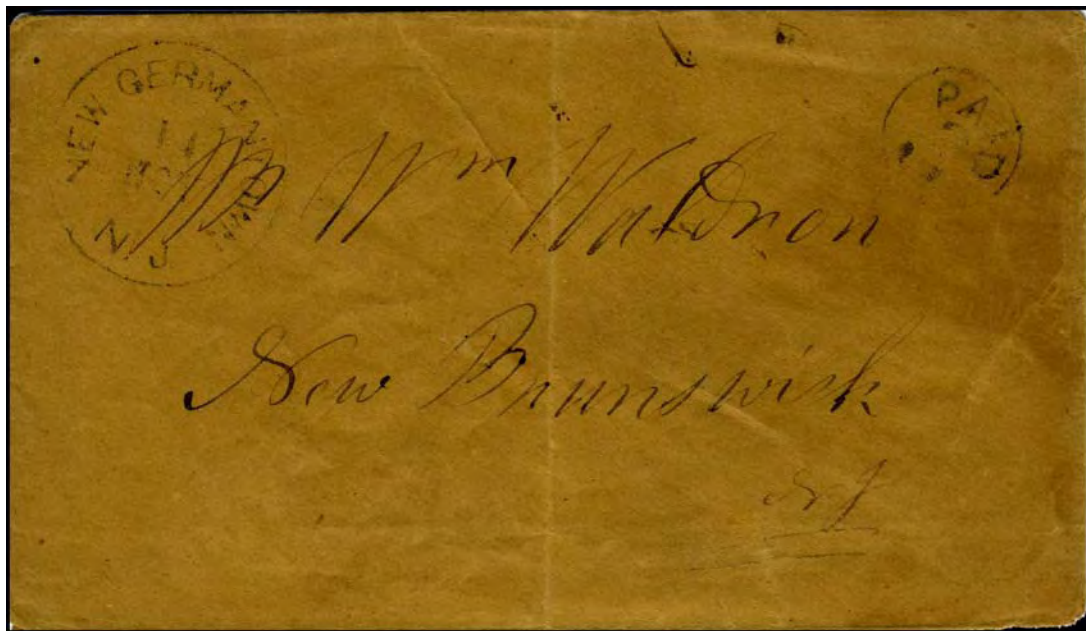 NEW GERMANTOWN
14
N.J.
PAID
Mr Wm Waldron
New Brunswick
NJ